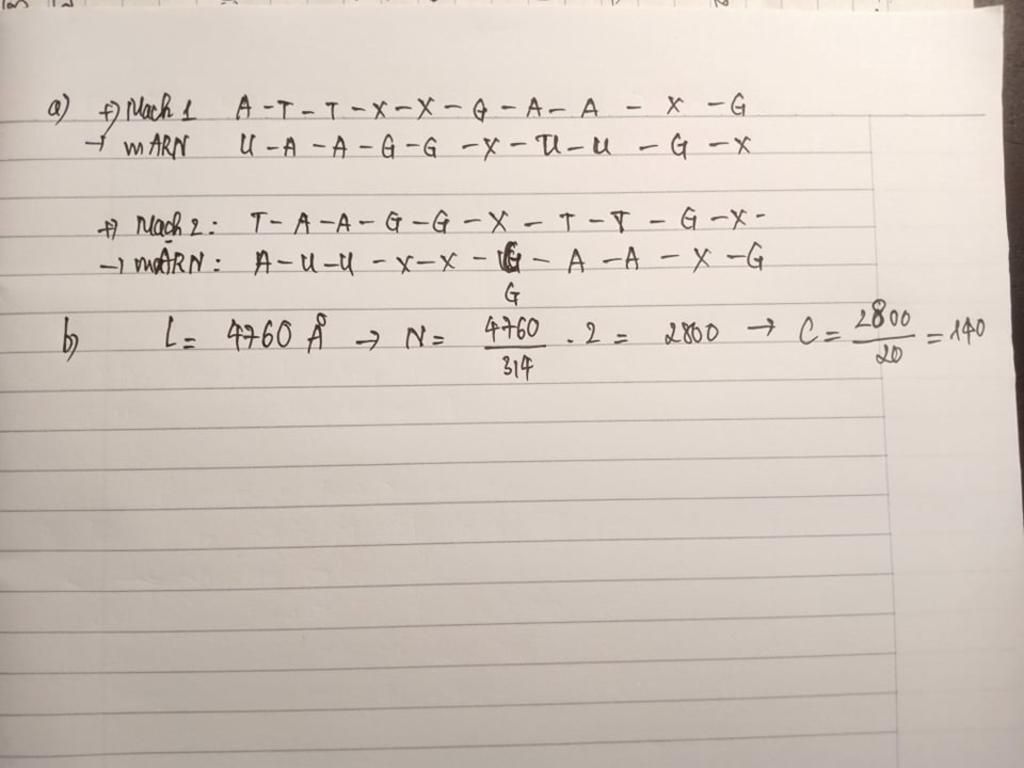 a) +) Mạch 1 A - T - T - X - X - G - A - A - X - G
→ mARN U - A - A - G - G - X - U - U - G - X
+) Mạch 2: T - A - A - G - G - X - T - T - G - X -
→ mARN: A - U - U - X - X - G - A - A - X - G
G
b) L = 4760 Å → N = 4760/3,4 . 2 = 2800 → C = 2800/20 = 140